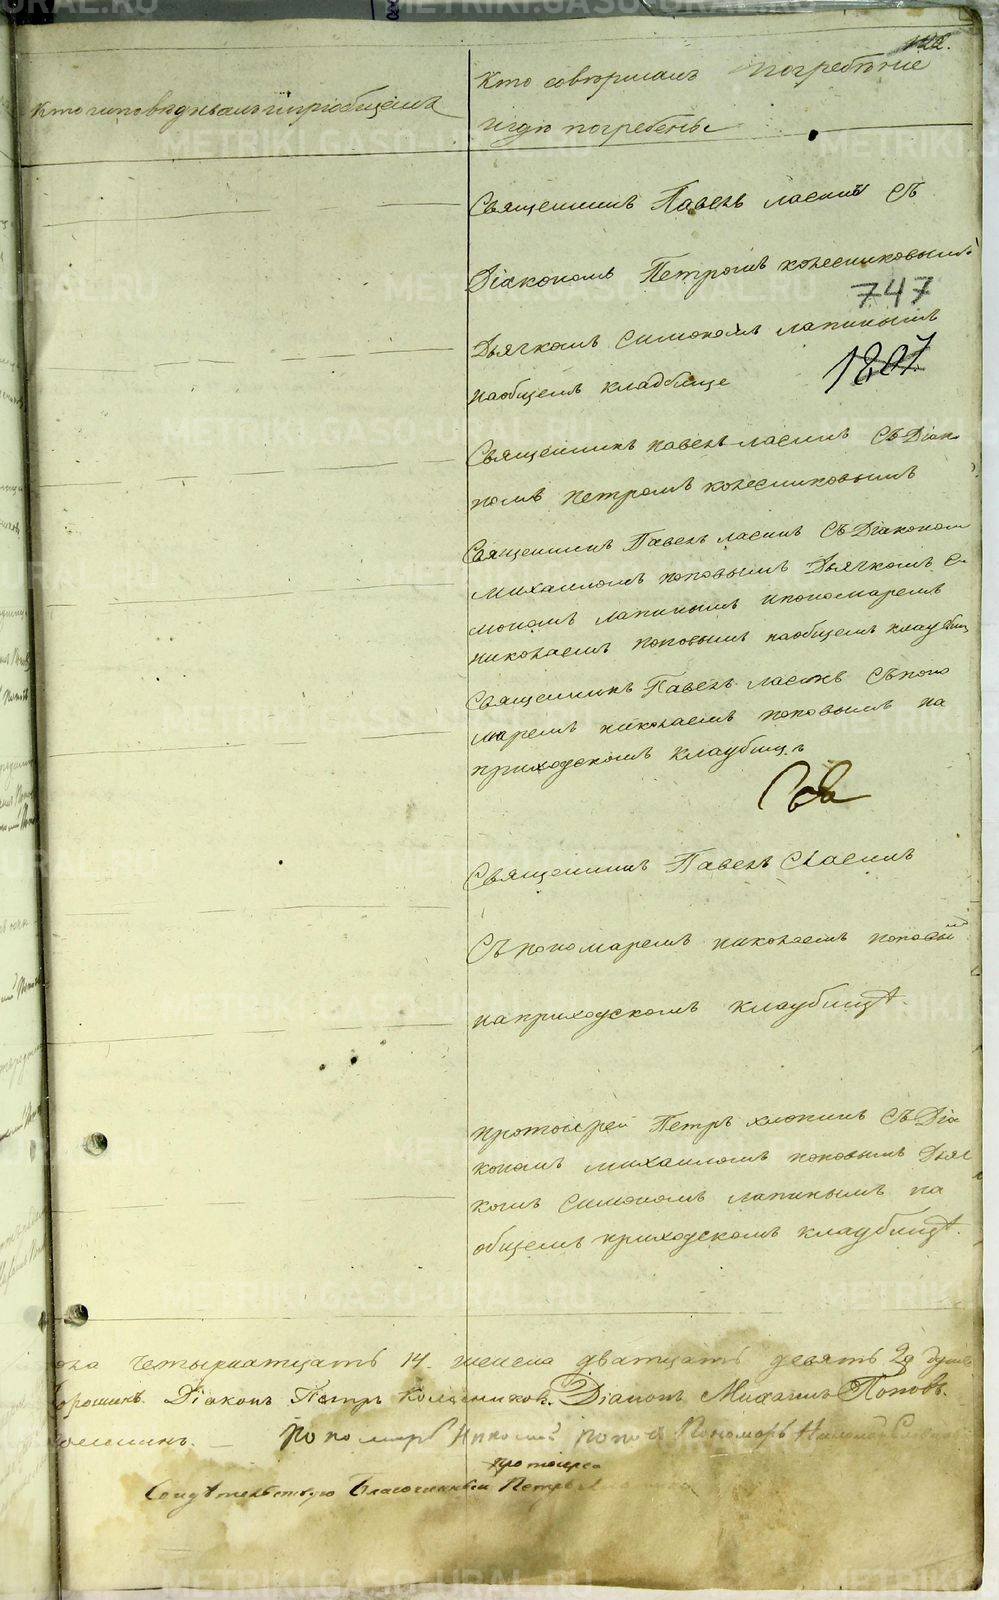 122.
Кто исповѣдывалъ и пріобщалъ
Кто совершалъ погребѣніе
и гдѣ погребены
Священникъ Павелъ Ласинъ Съ
Діакономъ Петромъ колесниковымъ
747
Дьячкомъ Симономъ лапинымъ
1807
наобщемъ кладбище
Священникъ павелъ ласинъ Съ Діако
номъ петромъ колесниковымъ
Священникъ Павелъ ласинъ Съ Діакономъ
михаиломъ поповымъ Дьячкомъ Си
мономъ лапинымъ ипономаремъ
николаемъ поповымъ наобщемъ кладбищ
Священникъ Павелъ ласинъ Съ поно
маремъ николаемъ поповымъ на
приходскомъ кладбищѣ
Священникъ Павелъ
Съ пономаремъ николаемъ поповым
наприходскомъ кладбищѣ.
протоіерей Петръ хлопинъ Съ Діа
кономъ михаиломъ поповымъ Дьяч
комъ Симономъ лапинымъ на
общемъ приходскомъ кладбищѣ.
четырнатцать 14. женска дватцать девять 29 душъ
Діаконъ Петръ Колесниковъ. Діаконъ Михаилъ Поповъ.
Пономарь Николай Попов Пономарь
протоіерей
Свидѣтельствую Благочинный Петръ